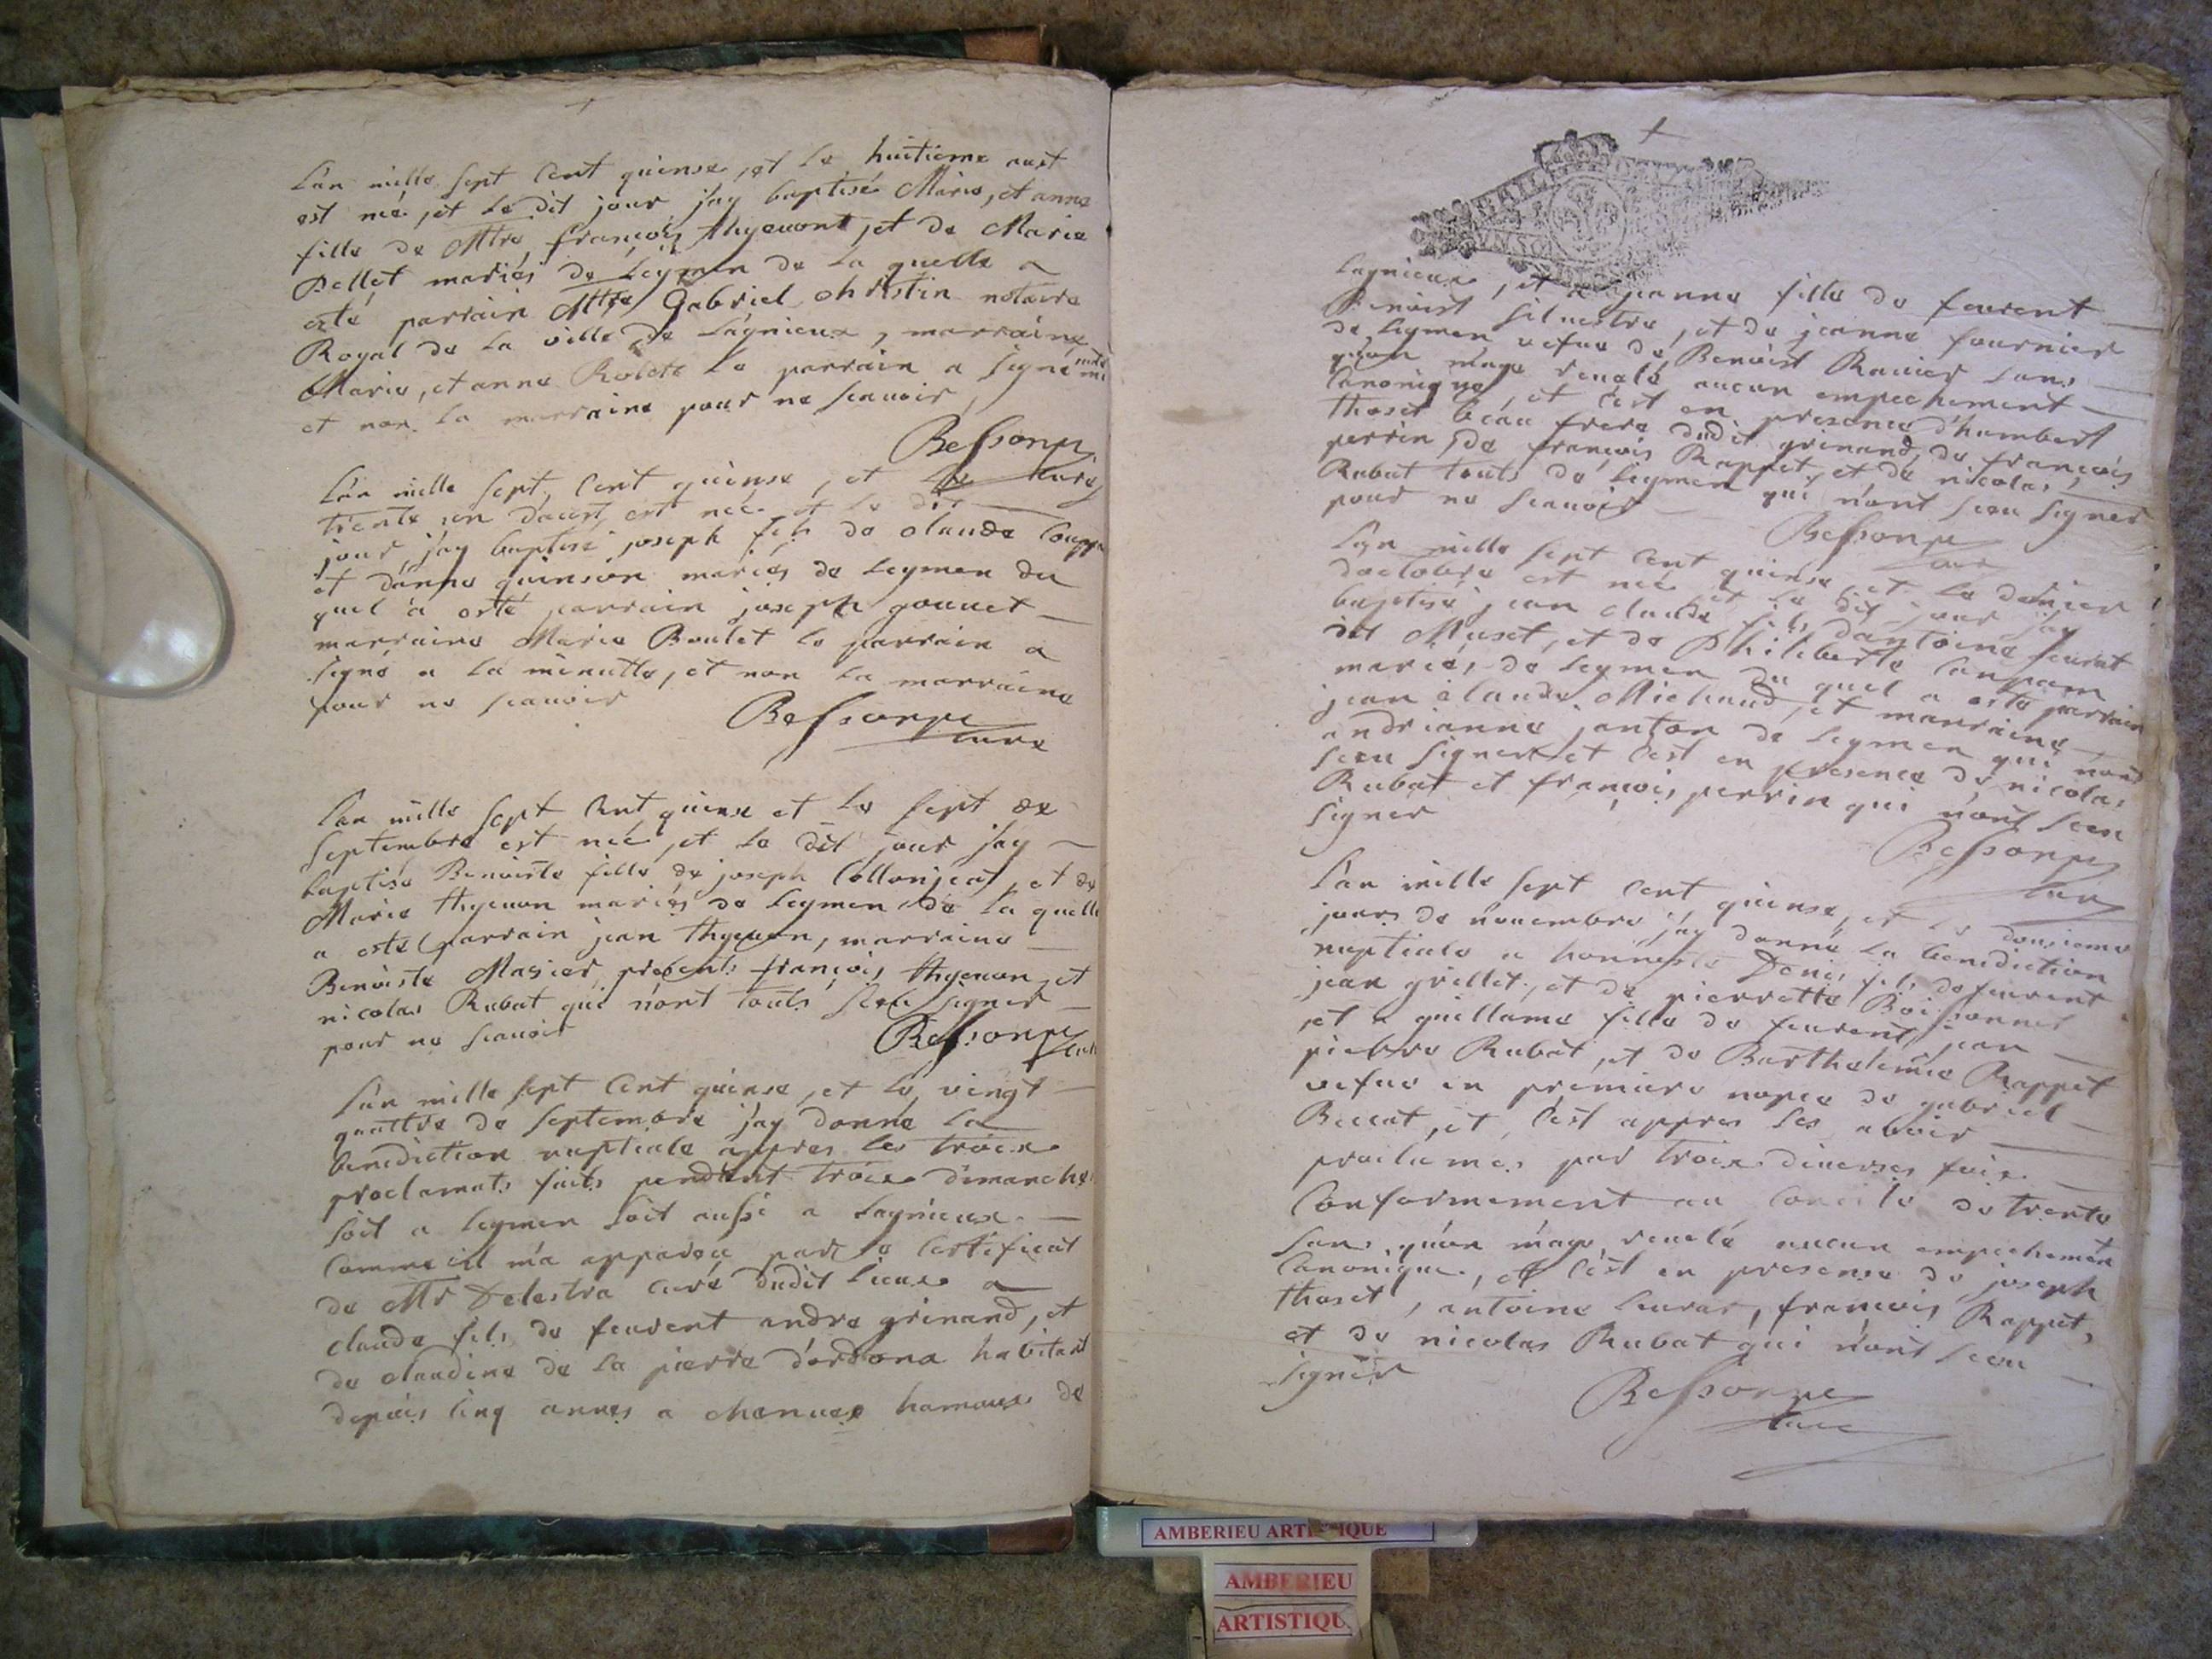 L'an mille sept cent quinse, et le huitieme aust
est née, et le dit jour j'ay baptisé Marie, et anne
fille de Mtre françois thyeuont, et de Marie
Pellet mariés de Leymen de la quelle a
esté parrain Mtre Gabriel christin notaire
Royal de la ville de Lagnieux, marraine
Marie, et anne Rolete le parrain a signé
et non la marraine pour ne scauoir
Bessonne
curé
L'an mille sept cent quinse, et le
trente un d'aust est né et le dit
jour j'ay baptisé joseph fils de claude
et d'anne quinson mariés de Leymen du
quel a esté parrain joseph gonnet
marraine Marie Boulet le parrain a
signé a la minutte, et non la marraine
pour ne scauoir
Bessonne
curé
L'an mille sept cent quinse et le sept de
septembre est née, et le dit jour j'ay
baptisé Benoiste fille de joseph Collonjeat, et de
Marie thyeuon mariés de Leymen de la quelle
a esté parrain jean thyeuon, marraine
Benoiste Masier, presents françois thyeuon et
nicolas Rubat qui n'ont touts sceu signer
pour ne scauoir
Bessonne
curé
L'an mille sept cent quinse, et le vingt
quattre de septembre j'ay donné la
benediction nuptiale appres les troix
proclamats faits pendent troix dimanches
soit a Leymen soit aussi a Lagnieux
comme il m'a apparou par le certificat
de Mr Delestra curé dudit lieux a
claude fils de feurent andre grinand, et
de claudine de la pierre d'ordona habitant
depuis cinq annes a chanues hamaux de
Lagnieux, et a jeanne fille de feurent
Benoist siluestre, et de jeanne fournier
de Leymen vefue de Benoist Rauier sans
qu'on m'aye reuelé aucun empechement
canonique, et c'est en presence d'humbert
thoset beau frere dudit grinand, de françois
perrin, de françois Rappet, et de nicolas
Rubat touts de Leymen qui n'ont sceu signer
pour ne scauoir
Bessonne
curé
L'an mille sept cent quinse, et le dernier
d'octobre est né et le dit jour j'ay
baptisé jean claude fils d'antoine
dit Muset, et de Philiberte
mariés de Leymen du quel a esté parrain
jean claude Michaud, et marraine
andrianne janton de Leymen qui n'ont
sceu signer et c'est en presence de nicolas
Rubat et françois perrin qui n'ont sceu
signer
Bessonne
curé
L'an mille sept cent quinse, et le dousieme
jours de nouembre j'ay donné la benediction
nuptiale a honneste Denis fils de feurent
jean grillet, et de pierrette Boissonnet
et a guillame fille de feurent jean
pierre Rubat, et de Bartholemie Rappet
vefue en premiere nopce de gabriel
Beccat, et c'est appres les avoir
proclames par troix diuerses foix
Conformement au Concile de trente
sans qu'on m'aye reuelé aucun empechement
canonique, et c'est en presense de joseph
thoset, antoine feurat, françois Rappet,
et de nicolas Rubat qui n'ont sceu
signer
Bessonne
curé
AMBERIEU ARTISTIQUE
AMBERIEU
ARTISTIQUE